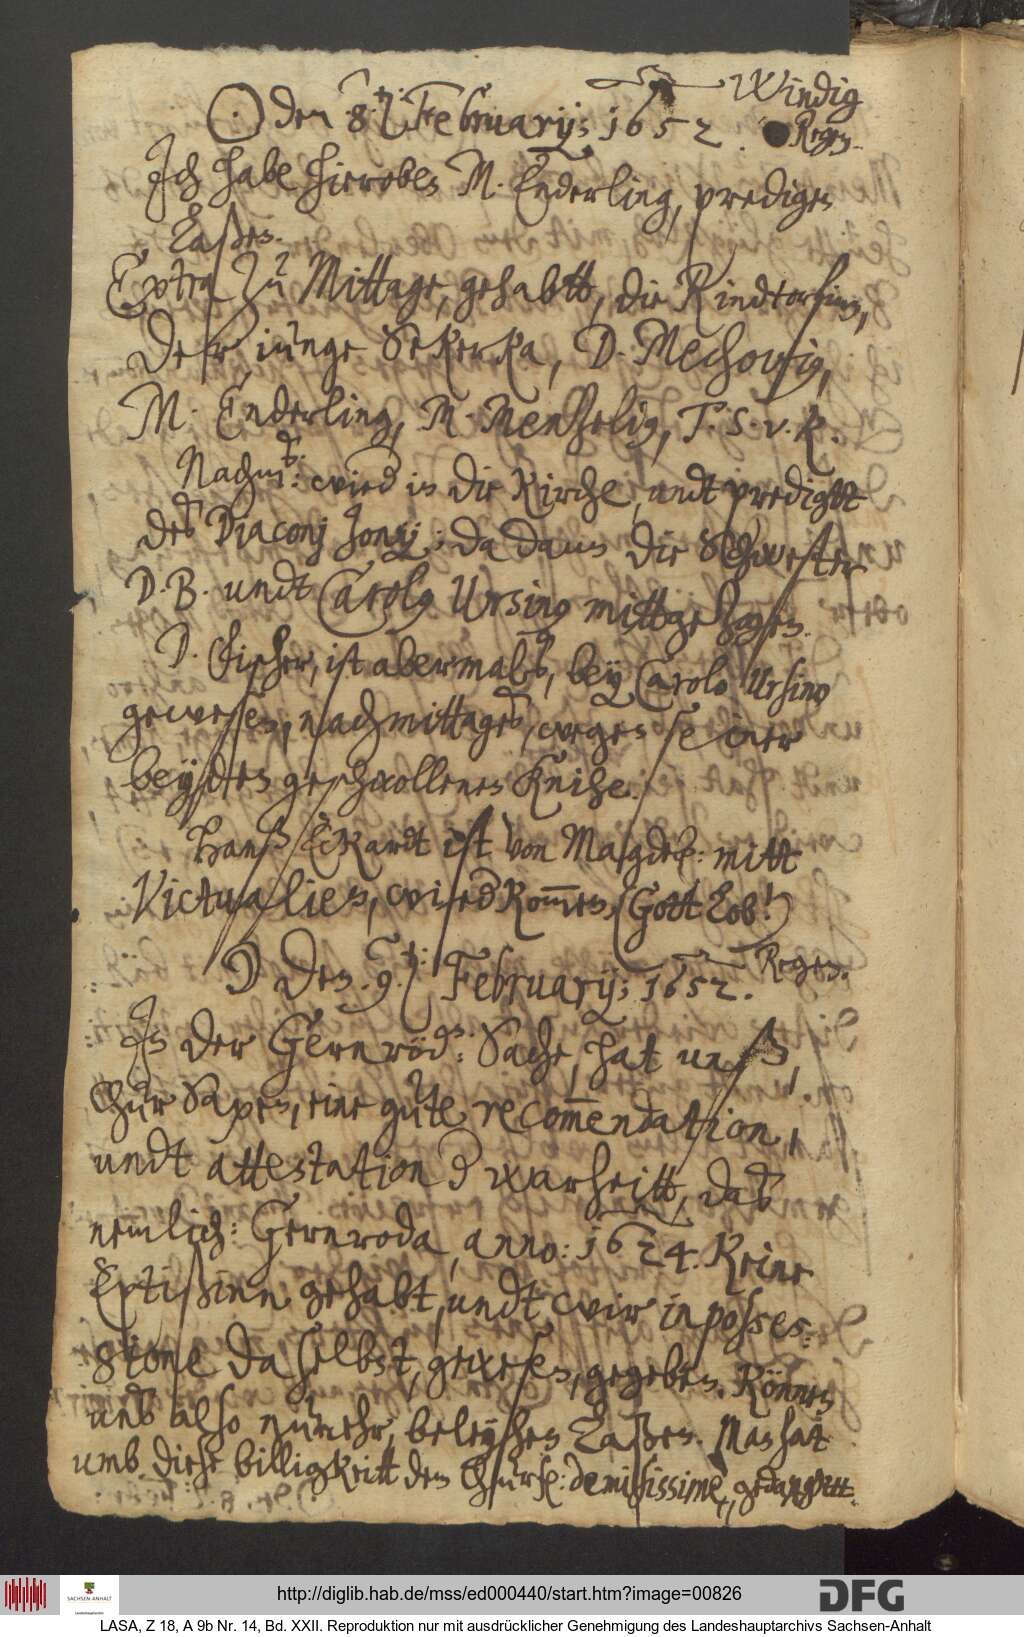 ☉ den 8.t: February; 1652. Windig
Regen.
Ich habe hieroben M. Enderling, predigen
Laßen.
Extra zu Mittage, gehabtt, die Rindtorfinn,
der iunge Sekerka, D. Mechovius,
M. Enderling, M. Menzelius, T. S. v. K.
Nachmitt: wied in die Kirche, undt predigtt
des Diaconj Jonij; da dann die Schwester
D. B. undt Carolus Ursinus mittgezogen.
D. Fischer, ist abermals, bey Carolo Ursino
gewesen, nachmittages, wegen seiner
beyden geschwollenen Knihe.
Hanß Eckardt ist von Magdeb: mitt
Victualien, wied kommen, (Gott Lob!)
☽ den. 9.t: February; 1652. Regen.
In der Gernröd: Sache, hat unß,
Chur Saxen, eine gute recommendation,
undt attestation der warheitt, daß
nemlich: Gernroda, anno: 1624. keine
Eptißinn gehabt, undt wir in posses:
sione daselbst, gewesen, gegeben. Können
uns also nunmehr, beleyhen Laßen. Man hat
umb diese billigkeitt dem Churf: demississime, gedanckett.
http://diglib.hab.de/mss/ed000440/start.htm?image=00826
SACHSEN-ANHALT
DFG
LASA, Z 18, A 9b Nr. 14, Bd. XXII. Reproduktion nur mit ausdrücklicher Genehmigung des Landeshauptarchivs Sachsen-Anhalt